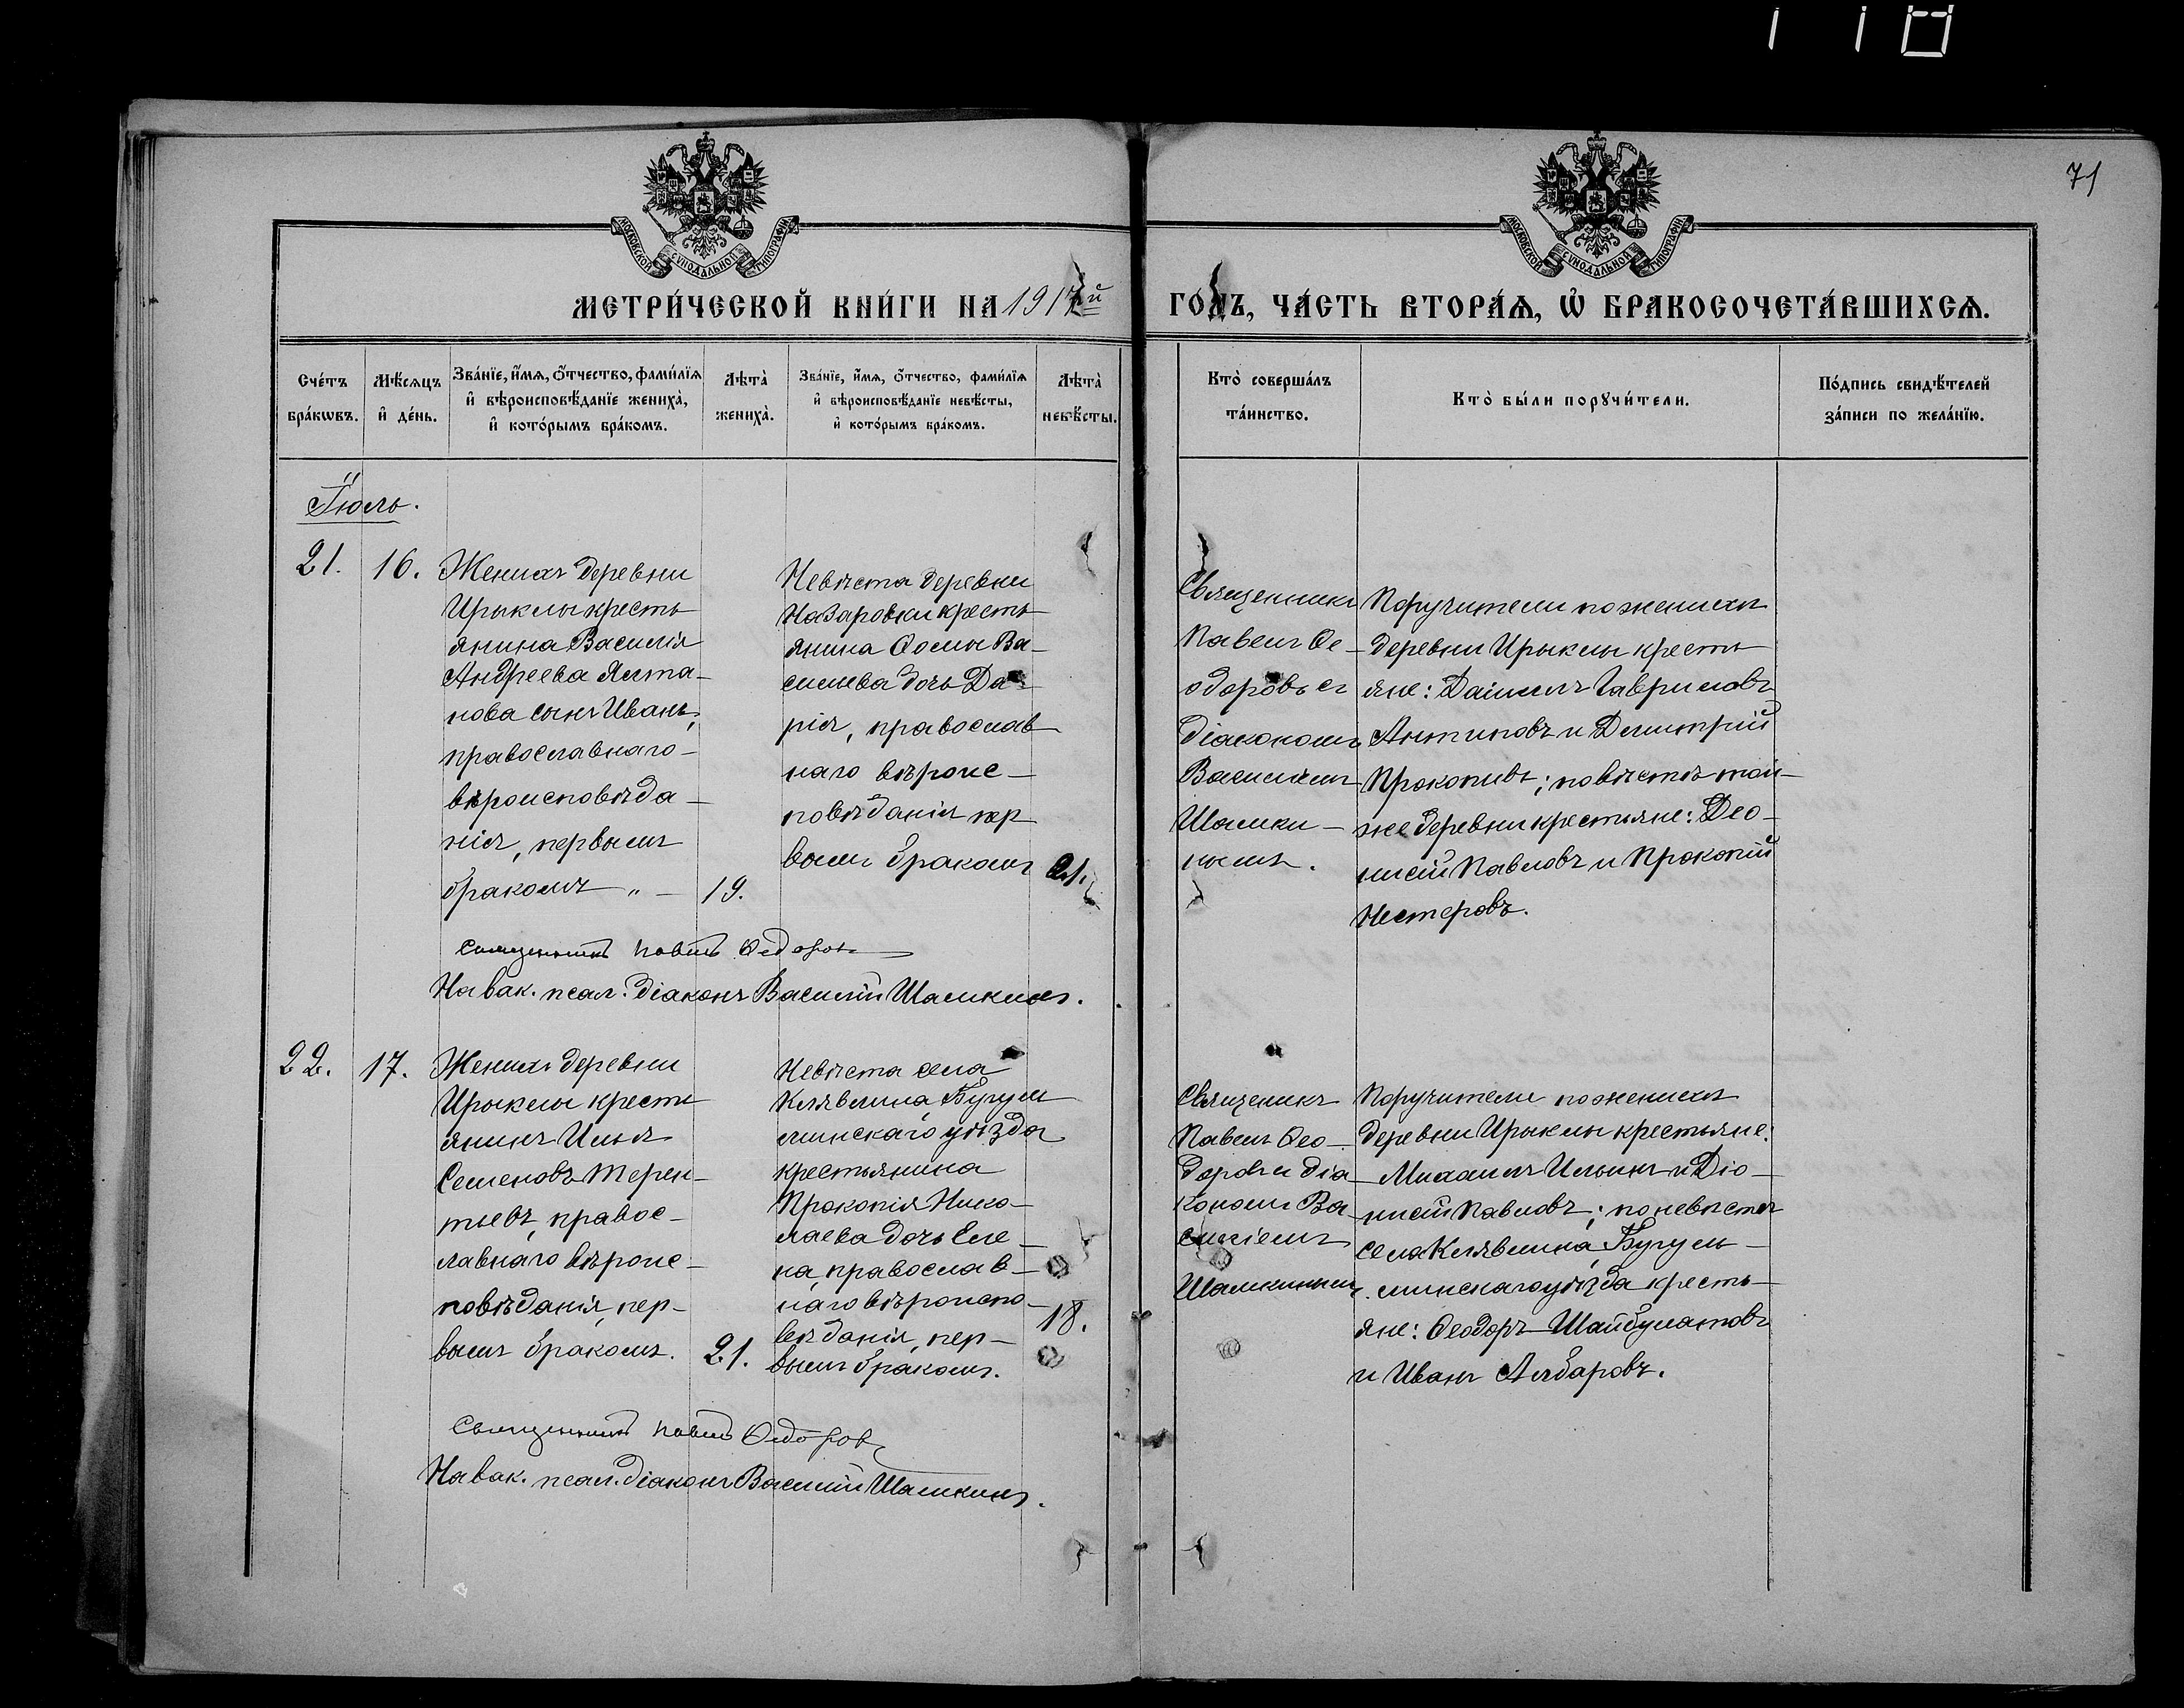 71
МОСКОВСКОЙ СѴНОДАЛЬНОЙ ТИПОГРАФІИ
МОСКОВСКОЙ СѴНОДАЛЬНОЙ ТИПОГРАФІИ
МЕТРИ́ЧЕСКОЙ КНИ́ГИ НА 1917й
ГО́ДЪ, ЧА́СТЬ ВТОРА́Ѧ, Ѡ҆ БРАКОСОЧЕТА́ВШИХСѦ.
Сче́тъ
бра́кѡвъ.
Мѣ́сяцъ
и҆ де́нь.
Зва́нїе, и҆́мя, ѻ҆́тчество, фами́лїя
и҆ вѣроисповѣ́данїе жениха̀,
и҆ кото́рымъ бра́комъ.
Лѣта̀
жениха̀.
Зва́нїе, и҆́мя, ѻ҆́тчество, фами́лїя
и҆ вѣроисповѣ́данїе невѣ́сты,
и҆ кото́рымъ бра́комъ.
Лѣта̀
невѣ́сты.
Кто̀ соверша́лъ
та́инство.
Кто̀ бы́ли порꙋчи́тели.
По́дпись свидѣ́телей
за́писи по жела́нїю.
Іюль.
21.
16.
Женихъ деревни
Ирыклы кресть
янина Василія
Андреева Ялта-
нова сынъ Иванъ,
православнаго-
вѣроисповѣда-
нія, первымъ
бракомъ „ -
19.
Невѣста деревни
Назаровки кресть
янина Ѳомы Ва-
сильева дочь Да-
рія, православ
наго вѣроис-
повѣданія пер
вымъ бракомъ
21.
Священникъ
Павелъ Ѳе-
одоровъ съ
діакономъ
Василіемъ
Шамки-
нымъ.
Поручители по женихѣ
деревни Ирыклы кресть
яне: Даніилъ Гавриловъ
Антиповъ и Димитрій
Прокопивъ; по вѣстѣ той-
же деревни крестьяне: Део-
нисій Павловъ и Прокопій
Нестеровъ.
Священникъ Павелъ Ѳедоровъ
На вак. псал. діаконъ Василій Шамкинъ.
22.
17.
Женихъ деревни
Ирыклы кресть
янинъ Илья
Семеновъ Терен-
тьевъ, правос-
лавнаго вѣроис-
повѣданія, пер-
вымъ бракомъ.
21.
Невѣста села
Клявлина, Бугуль
минскаго уѣзда
крестьянина
Прокопія Нико-
лаева дочь Еле-
на, православ-
наго вѣроиспо-
вѣданія, пер-
вымъ бракомъ.
18.
Священикъ
Павелъ Ѳео-
доровъ и діа
кономъ Ва-
силіемъ
Шамкинымъ.
Поручители по женихѣ
деревни Ирыклы крестьяне:
Михаилъ Ильинъ и Діо-
нисій Павловъ; по невѣстѣ
села Клявлина, Бугуль-
минскаго уѣзда кресть-
яне: Ѳеодоръ Шайбулатовъ
и Иванъ Алдаровъ.
Священникъ Павелъ Ѳедоровъ
На вак. псал. діаконъ Василій Шамкинъ.